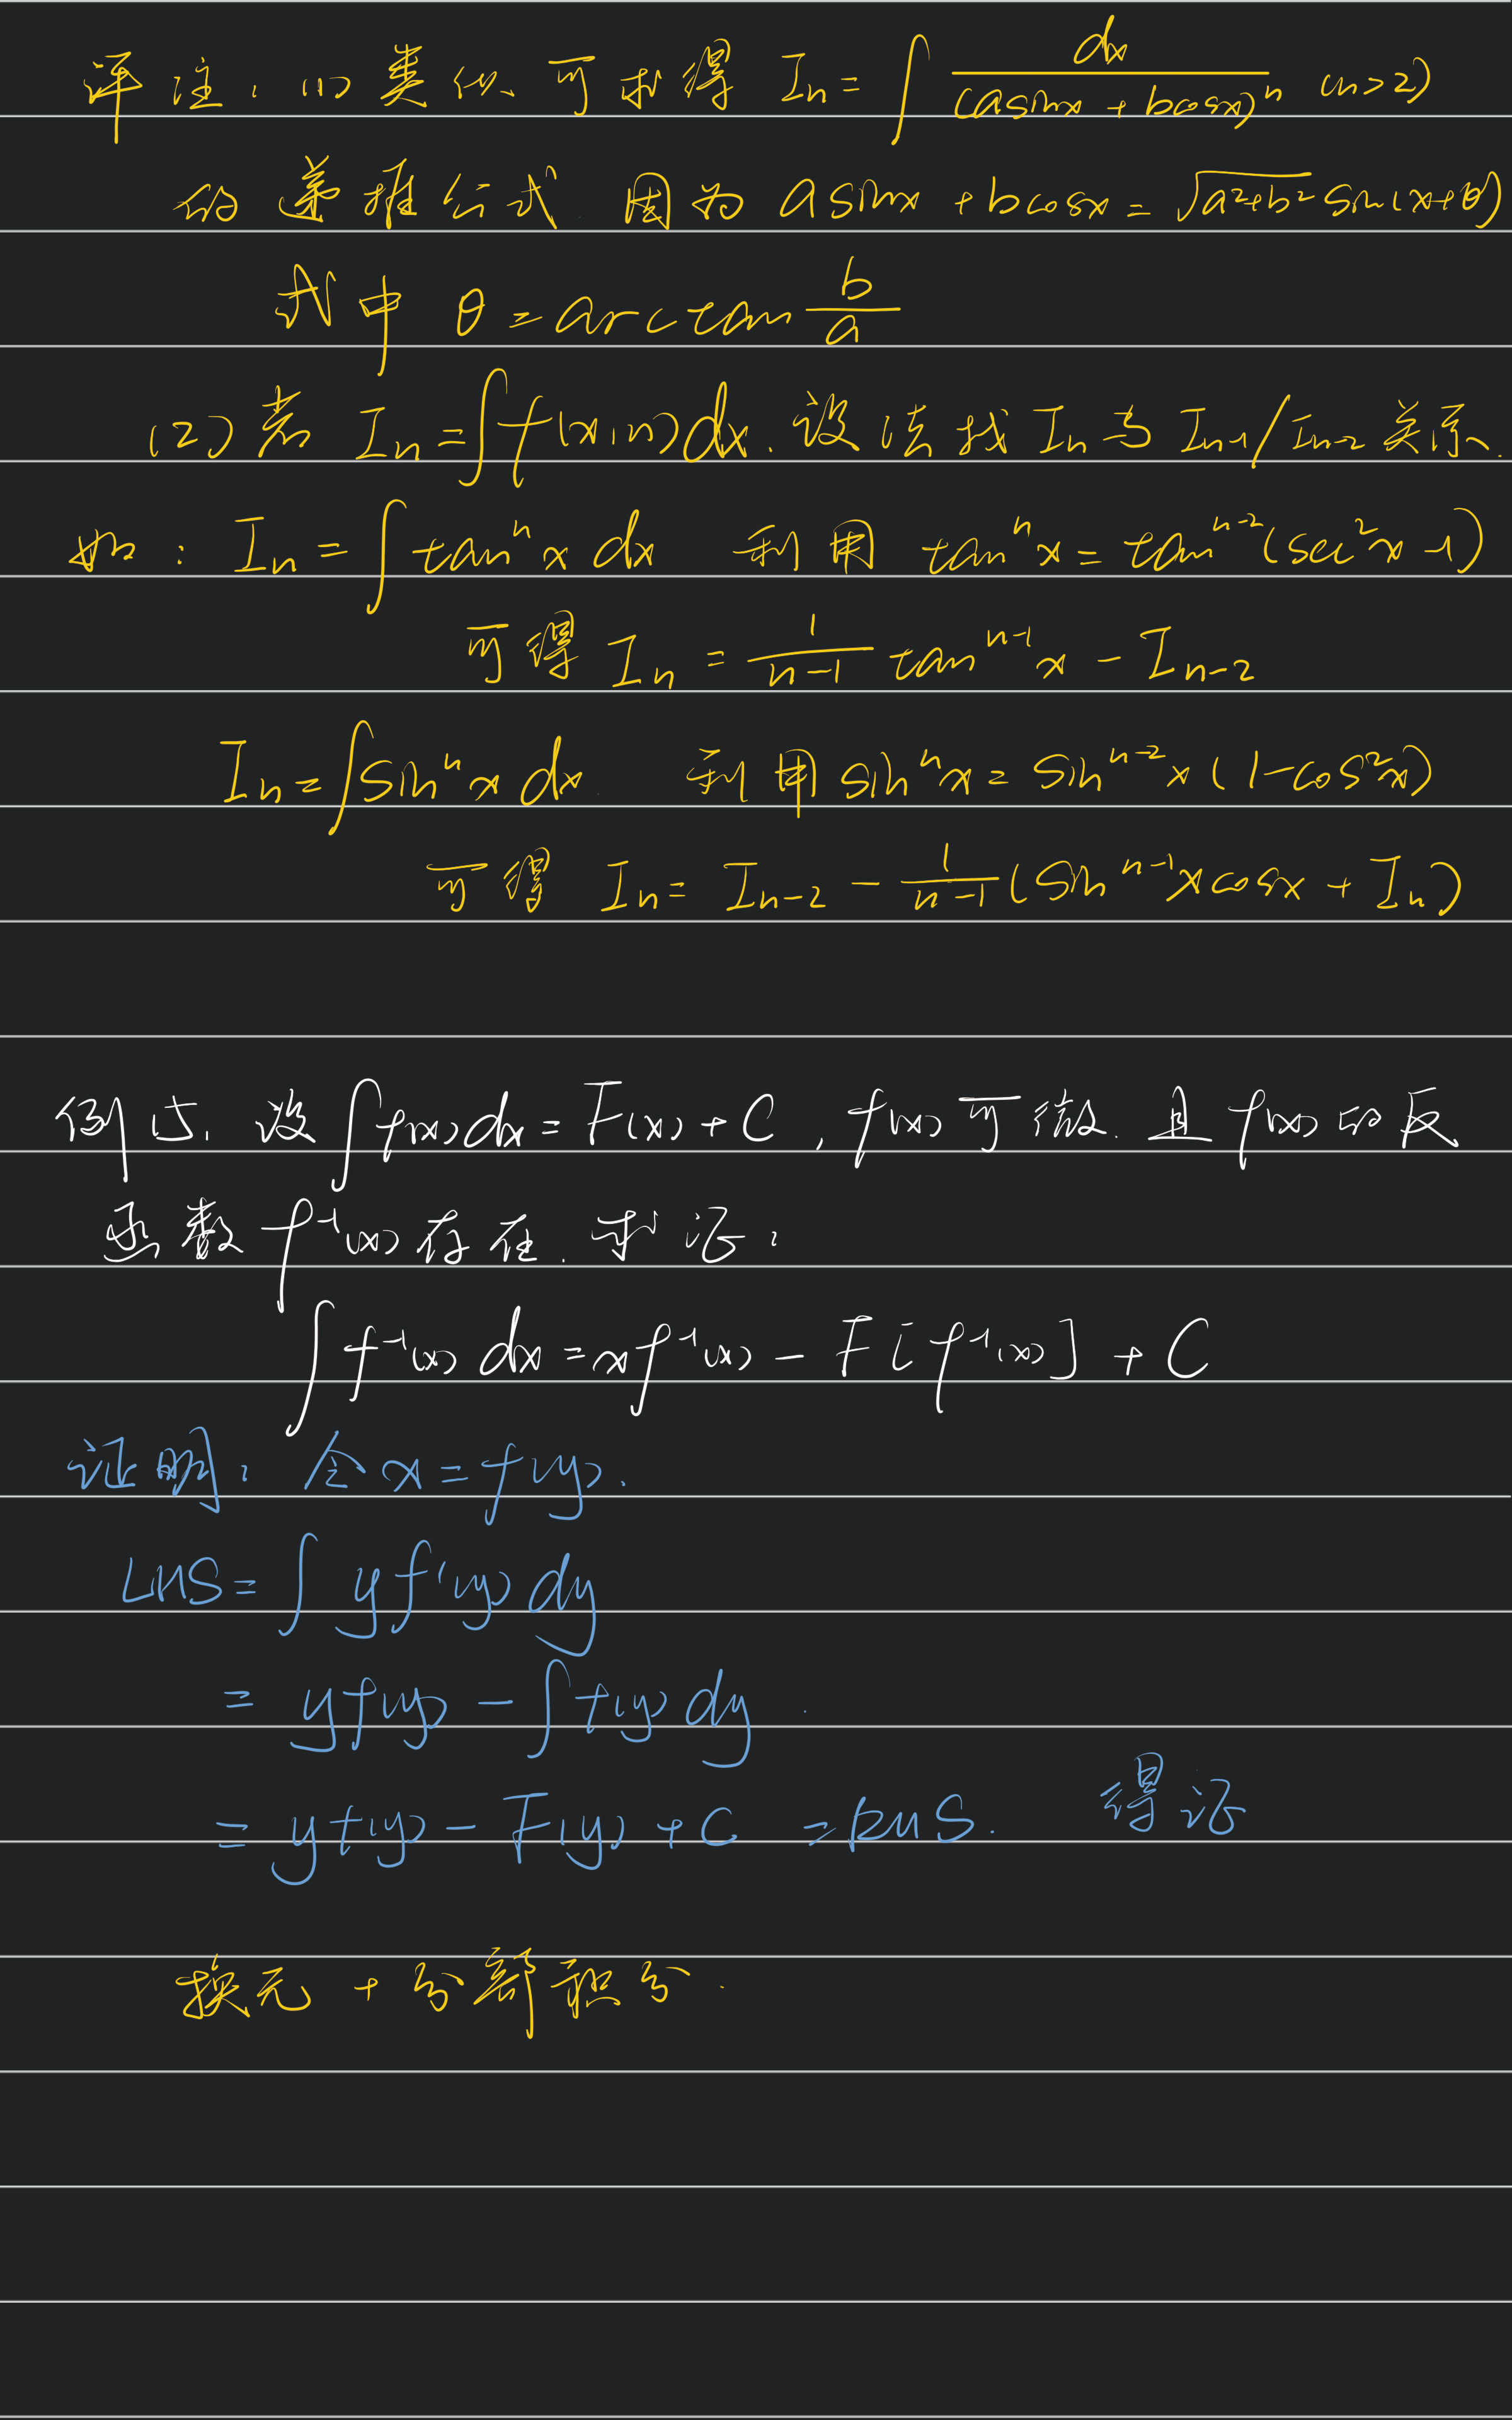 评注:(1)类似可求得 Iₙ=∫dx/(asinx+bcosx)ⁿ (n>2)
的递推公式.因为 asinx+bcosx=√(a²+b²)sin(x+θ)
式中 θ=arctan b/a
(2)若 Iₙ=∫f(x,n)dx.设法找 Iₙ与Iₙ₋₁/Iₙ₋₂关系.
如:Iₙ=∫tanⁿx dx 利用 tanⁿx=tanⁿ⁻²(sec²x-1)
可得 Iₙ=1/(n-1) tanⁿ⁻¹x-Iₙ₋₂
Iₙ=∫sinⁿx dx. 利用 sinⁿx=sinⁿ⁻²x(1-cos²x)
可得 Iₙ=Iₙ₋₂-1/(n-1)(sinⁿ⁻¹xcosx+Iₙ)
例15.设∫f(x)dx=F(x)+C,f(x)可微.且f(x)的反
函数f⁻¹(x)存在.求证:
∫f⁻¹(x)dx=xf⁻¹(x)-F[f⁻¹(x)]+C
证明:令x=f(y).
LHS=∫yf'(y)dy
=yf(y)-∫f(y)dy.
=yf(y)-F(y)+C=RHS. 得证
换元+分部积分.